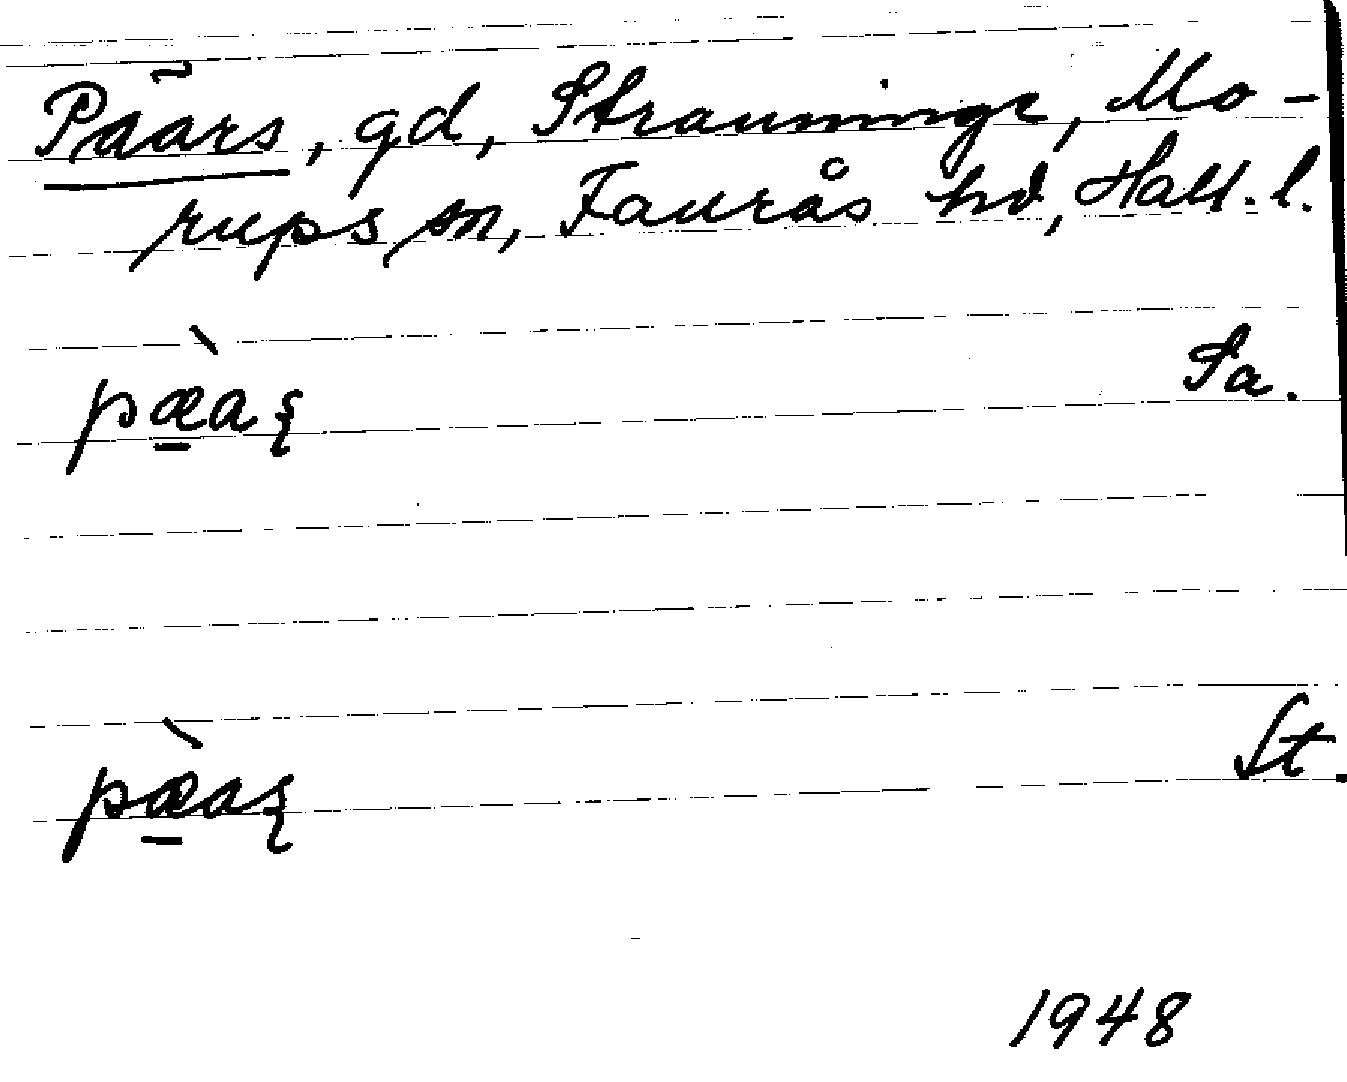 Päärs, gd, Strauninge, Mo-
rups sn, Faurås hd, Hall. l.
pæ̱̀aꞩ Sa.
pæ̱̀aꞩ St.
1948